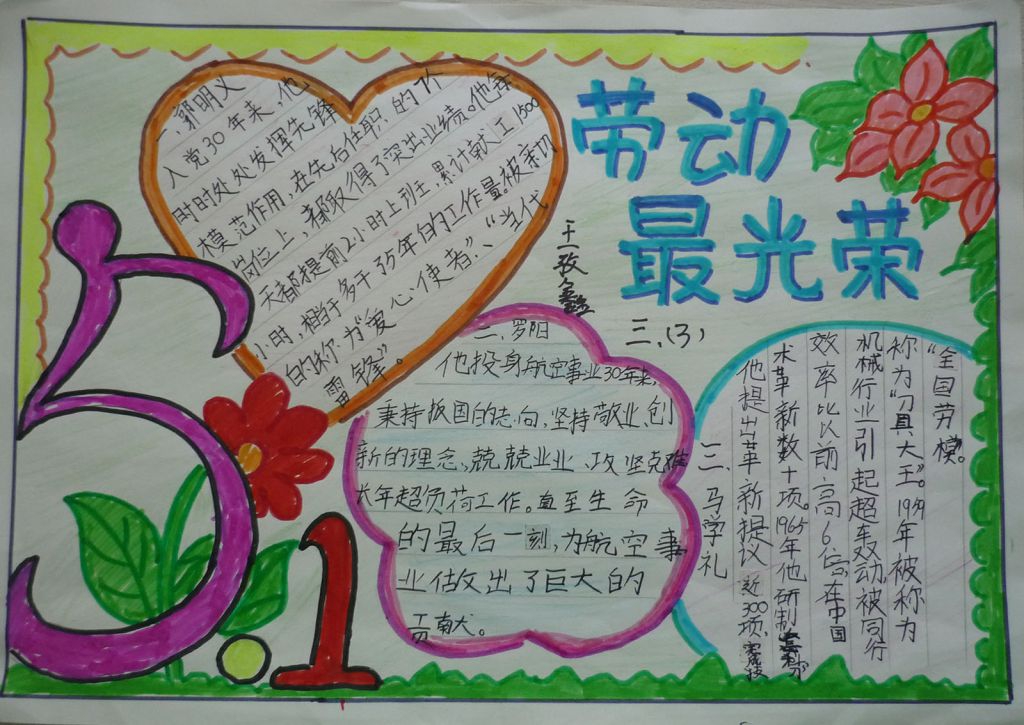 劳动
最光荣
一、郭明义
入党30年来，他
时时处处发挥先锋
模范作用，在先后任职的7个
岗位上，都取得了突出业绩。他每
天都提前2小时上班，累计献工1500
小时，相当于多干35年的工作量。被亲切
的称为“爱心使者”、“当代
雷锋”。
三、(3)
二、罗阳
他投身航空事业30年来，
秉持报国的志向，坚持敬业、创
新的理念，兢兢业业、攻坚克难
长年超负荷工作。直至生命
的最后一刻，为航空事
业做出了巨大的
贡献。
三、马学礼
他提出革新提议近300项，
术革新数十项。1965年他研制
效率比以前高6倍，在中国
机械行业引起轰动，被同行
称为“刀具大王”。1959年被称为
“全国劳模”。
5.1